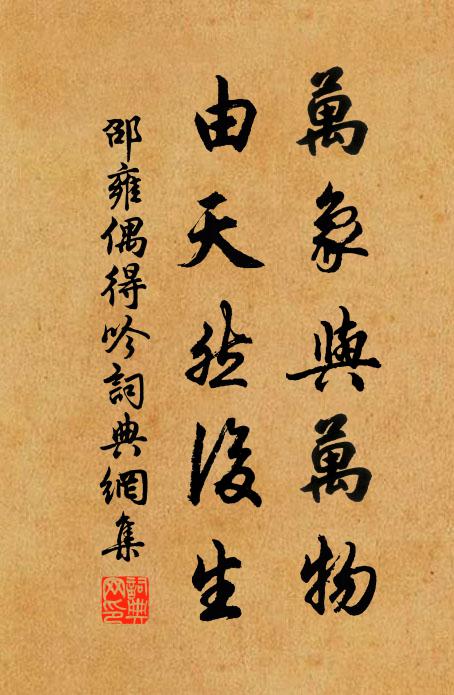 萬象與萬物
由天然後生
邵雍偶得吟詞典網集
詞典
网印